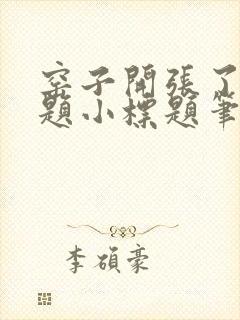 窑子開張了
題小標題筆
李碩豪